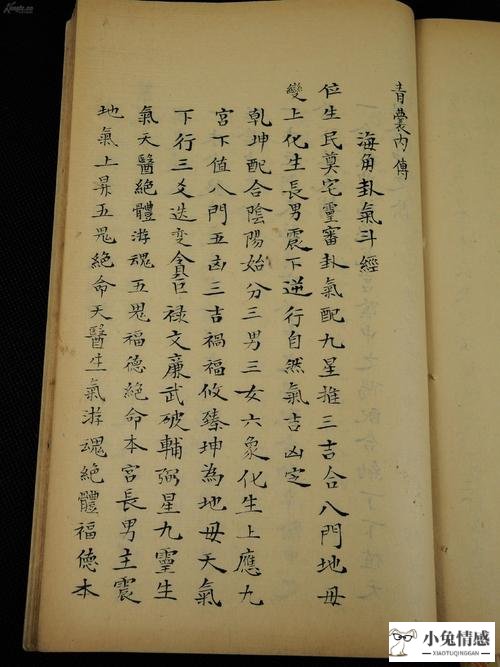 青囊內傳
海角卦氣斗經
位生民奠宅靈審卦氣配九星推三吉合八門地母
變上化生長男震下逆行自然氣吉凶定
乾坤配合陰陽始分三男三女六象化生上應九
宮下值八門五凶三吉禍福攸臻坤為地母天氣
下行三爻迭变貪巨祿文廉武破輔弼星九靈生
氣天醫絕體游魂五鬼福德絕命本宮長男主震
地氣上昇五鬼絕命天醫生氣游魂絕體福德本
小兔情感
XIAOTUQINGGAN